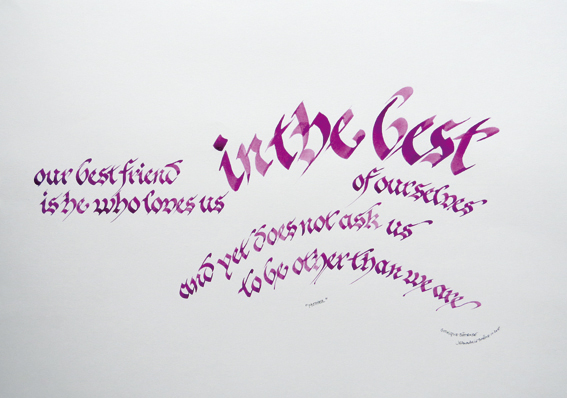 our best friend
is he who loves us
in the best
of ourselves
and yet does not ask us
to be other than we are